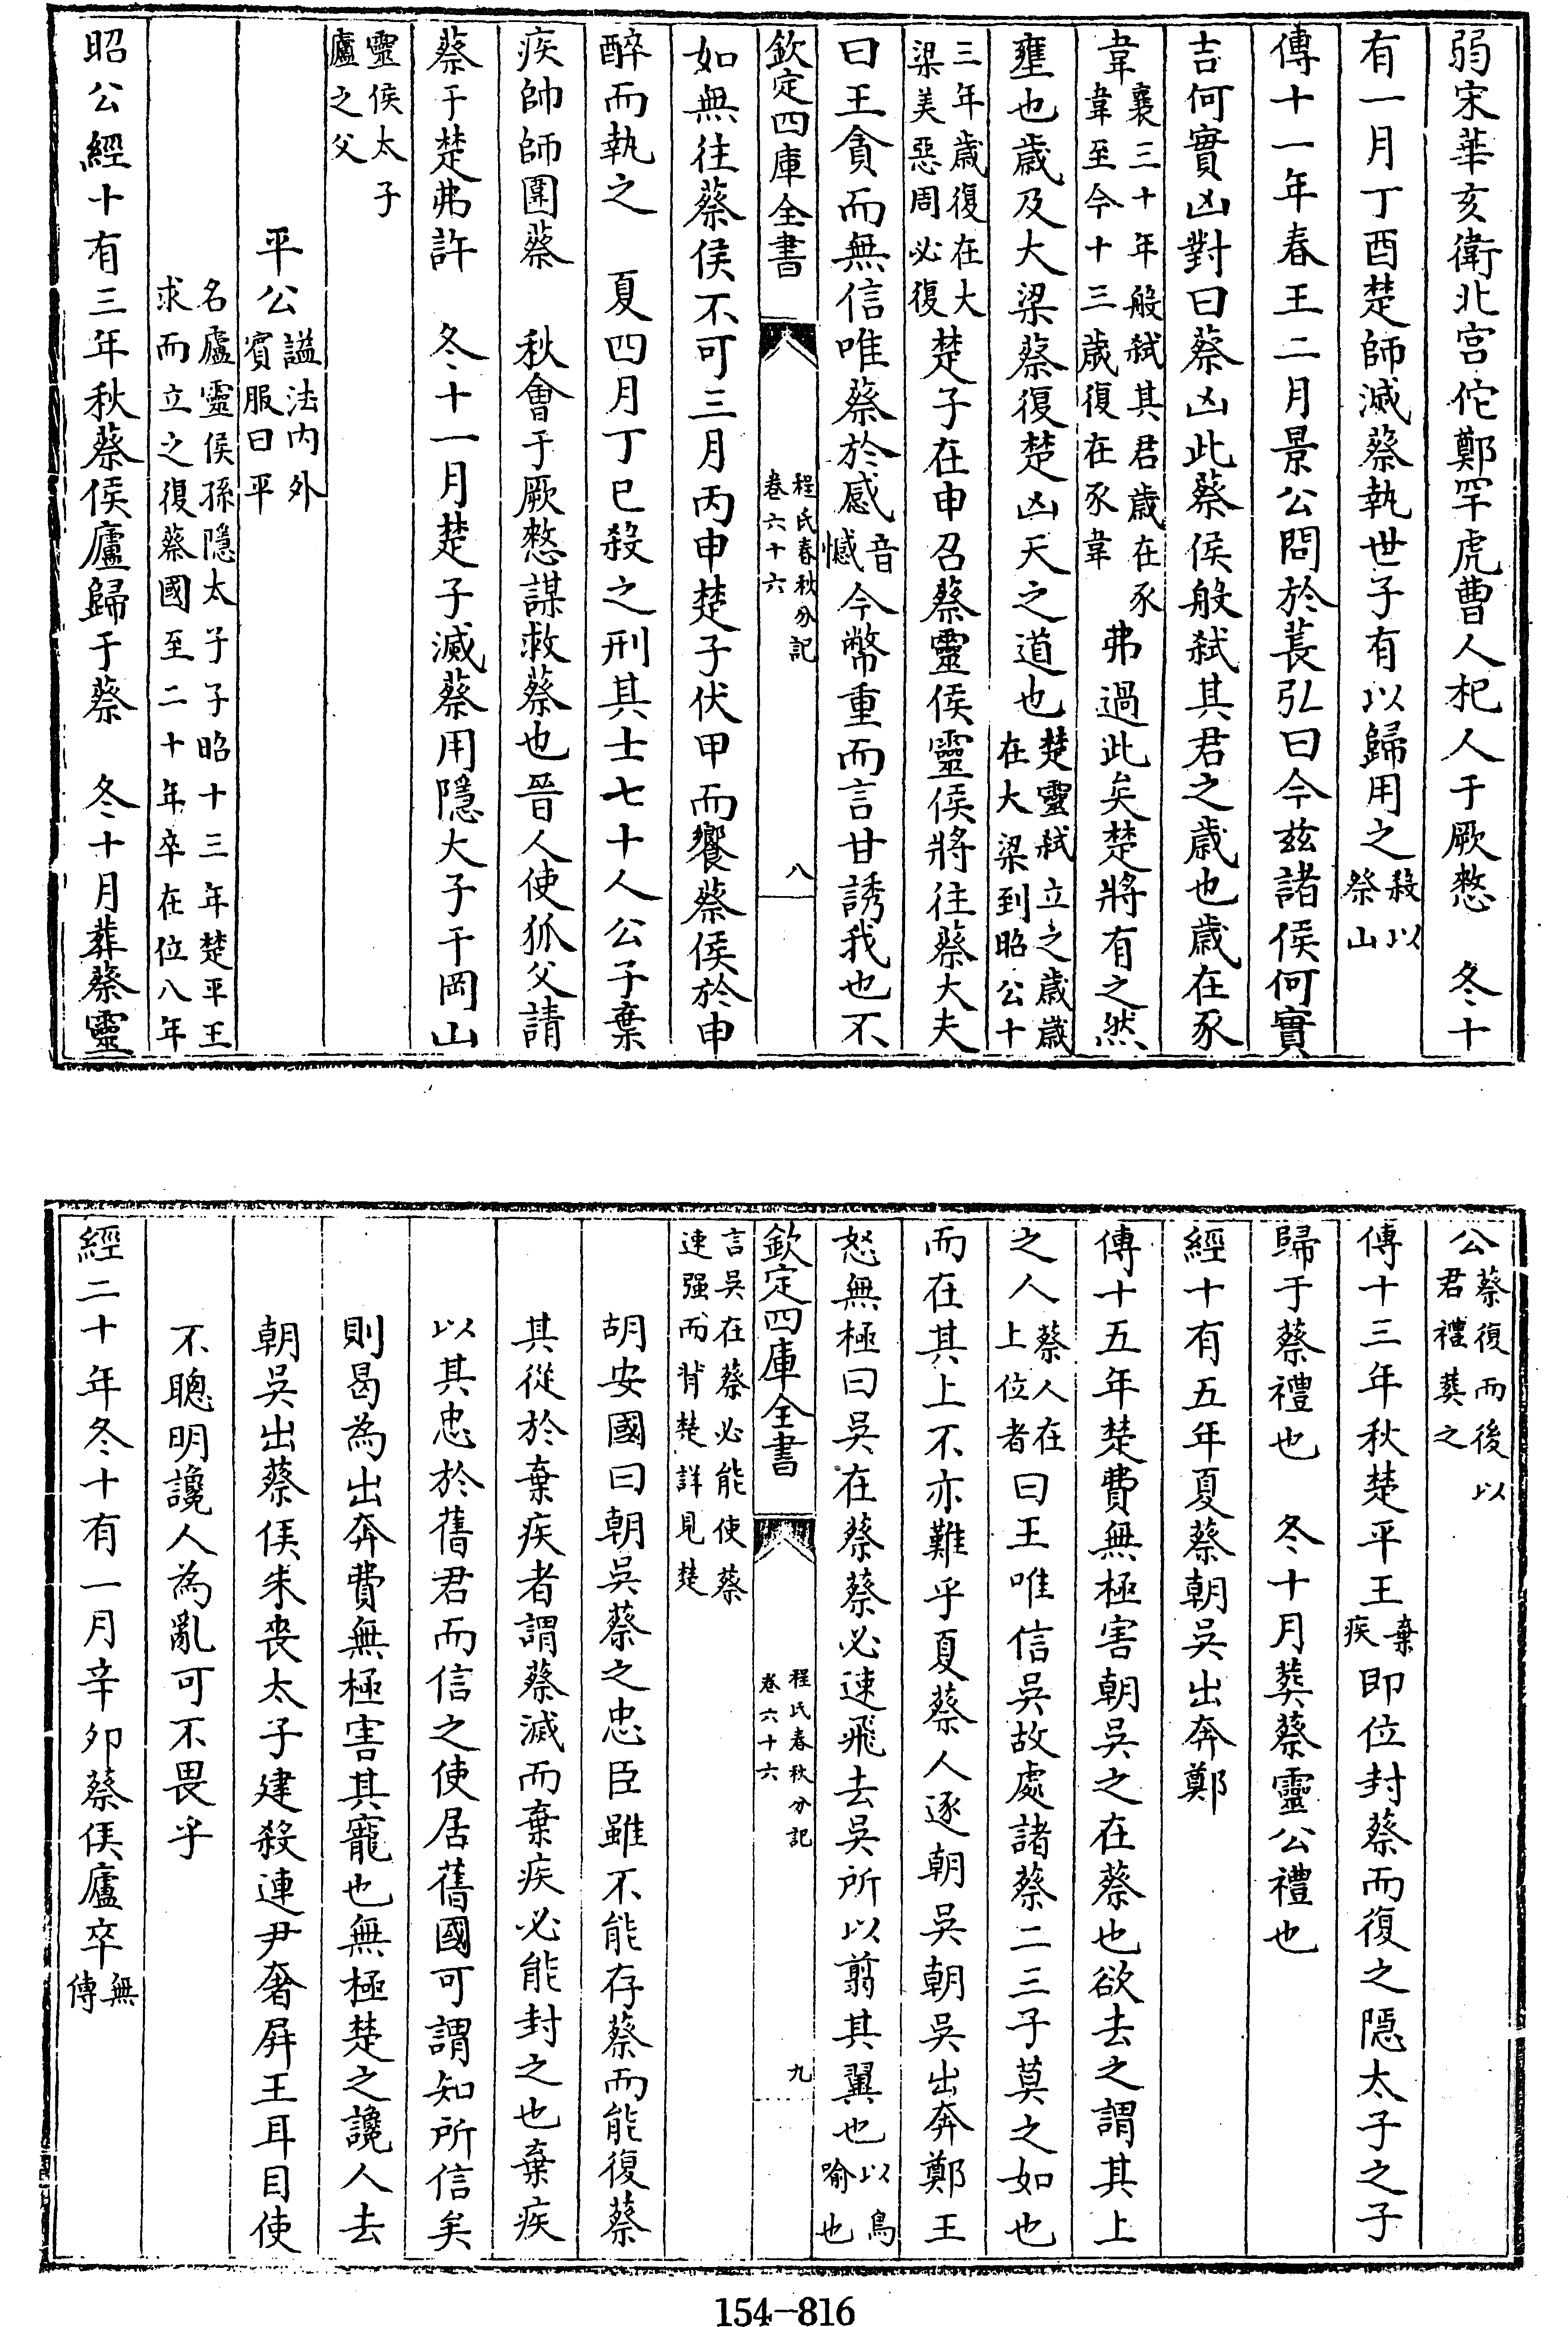 弱宋華亥衛北宫佗鄭罕虎曹人杞人于厥憖　冬十
有一月丁酉楚師滅蔡執世子有以歸用之殺以祭山
傳十一年春王二月景公問於萇弘曰今兹諸侯何實
吉何實凶對曰蔡凶此蔡侯般弑其君之歳也歳在豕
韋襄三十年般弑其君歳在豕韋至今十三歳復在豕韋弗過此矣楚將有之然
壅也歳及大梁蔡復楚凶天之道也楚靈弑立之歳歳在大梁到昭公十
三年歳復在大梁美惡周必復楚子在申召蔡靈侯靈侯將往蔡大夫
曰王貪而無信唯蔡於感音憾今幣重而言甘誘我也不
欽定四庫全書　程氏春秋分記卷六十六　八
如無往蔡侯不可三月丙申楚子伏甲而饗蔡侯於申
醉而執之　夏四月丁巳殺之刑其士七十人公子棄
疾帥師圍蔡　秋會于厥憖謀救蔡也晉人使狐父請
蔡于楚弗許　冬十一月楚子滅蔡用隱大子于岡山
靈侯太子廬之父
平公諡法内外賓服曰平
名廬靈侯孫隱太子子昭十三年楚平王求而立之復蔡國至二十年卒在位八年
昭公經十有三年秋蔡侯廬歸于蔡　冬十月葬蔡靈
公蔡復而後以君禮葬之
傳十三年秋楚平王棄疾即位封蔡而復之隱太子之子
歸于蔡禮也　冬十月葬蔡靈公禮也
經十有五年夏蔡朝吳出奔鄭
傳十五年楚費無極害朝吳之在蔡也欲去之謂其上
之人蔡人在上位者曰王唯信吳故處諸蔡二三子莫之如也
而在其上不亦難乎夏蔡人逐朝吳朝吳出奔鄭王
怒無極曰吳在蔡蔡必速飛去吳所以翦其翼也以鳥喻也
欽定四庫全書　程氏春秋分記卷六十六　九
言吳在蔡必能使蔡速强而背楚詳見楚
胡安國曰朝吳蔡之忠臣雖不能存蔡而能復蔡
其從於棄疾者謂蔡滅而棄疾必能封之也棄疾
以其忠於舊君而信之使居舊國可謂知所信矣
則曷為出奔費無極害其寵也無極楚之讒人去
朝吳出蔡侯朱喪太子建殺連尹奢屛王耳目使
不聰明讒人為亂可不畏乎
經二十年冬十有一月辛卯蔡侯廬卒無傳
154-816